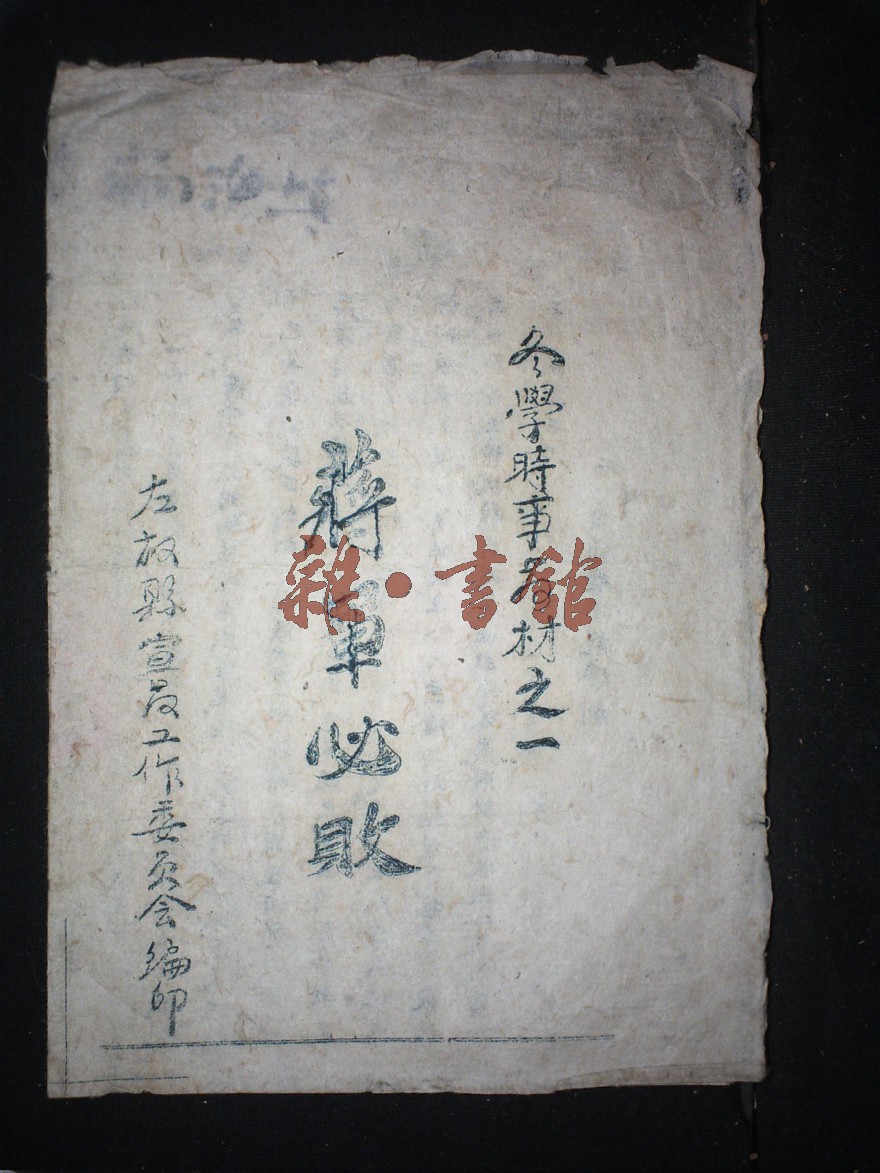 冬學時事材之一
蔣軍必敗
左权縣宣工作委员会編印
雜·書館